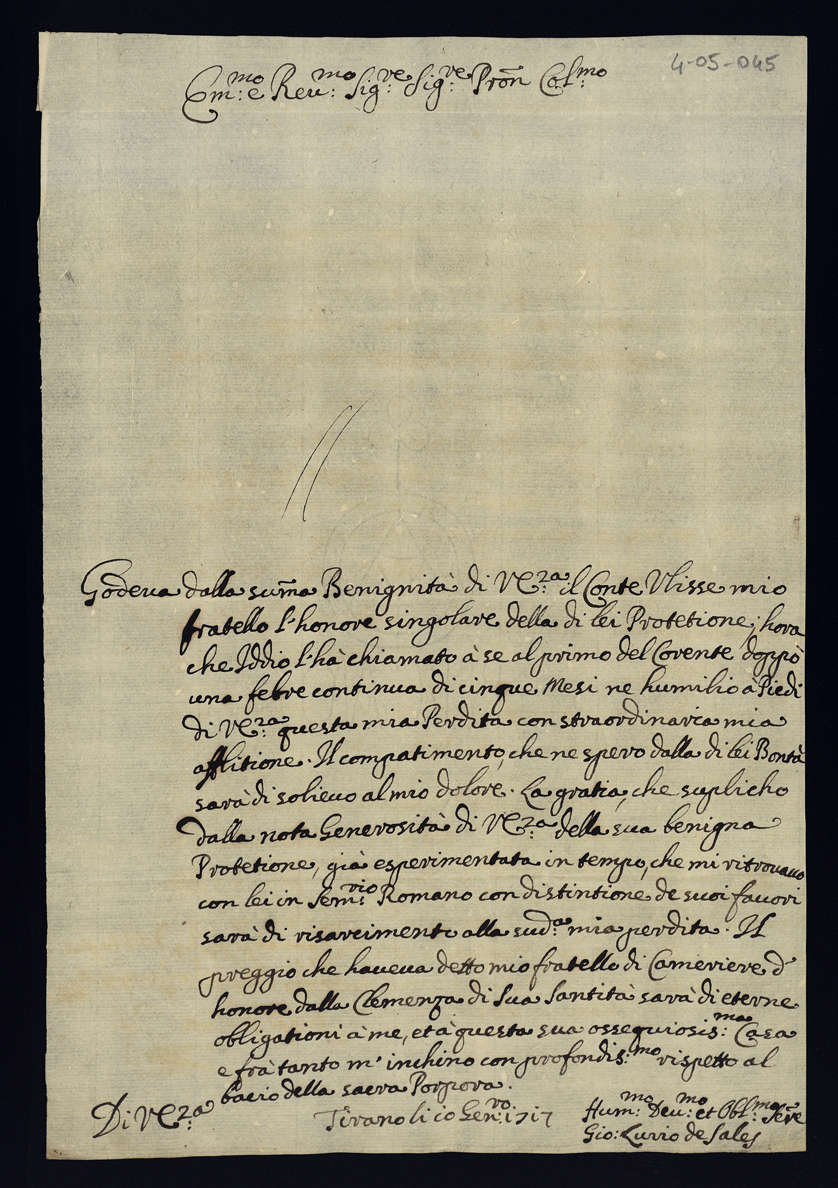 4-05-045
Em:mo e Reu:mo Sig:re Sig:re Pron Col:mo
Godeua dalla suma Benignità di VE:za il Conte Vlisse mio
fratello l'honore singolare della di lei Protetione; hora
che Iddio l'hà chiamato à se al primo del Corente doppò
una febre continua di cinque Mesi ne humilio à Piedi
di VE:za questa mia Perdita con straordinaria mia
afflitione. Il compatimento, che ne spero dalla di lei Bontà
sarà di solieuo al mio dolore. La gratia, che suplicho
dalla nota Generosità di VE:za della sua benigna
Protetione, già esperimentata in tempo, che mi ritrouauo
con lei in Sem:rio Romano con distintione de suoi fauori
sarà di risarcimento alla sud:a mia perdita. Il
preggio che haueua detto mio fratello di Cameriere d'
honore dalla Clemenza di Sua Santità sarà di eterne
obligationi à me, et à questa sua ossequiosis:ma Casa
e frà tanto m'inchino con profondis:mo rispetto al
bacio della sacra Porpora.
Di VE:za
Tirano li 10 Gen:ro 1717
Hum:mo Deu:mo et Obl:mo Sere
Gio: de Sales